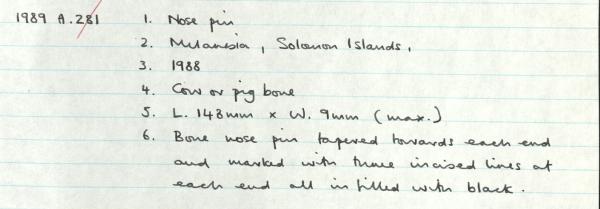 1989 A.281 1. Nose pin
2. Melanesia, Solomon Islands.
3. 1988
4. Cow or pig bone
5. L. 148mm x W. 9mm (max.)
6. Bone nose pin tapered towards each end
and marked with three incised lines at
each end all infilled with black.